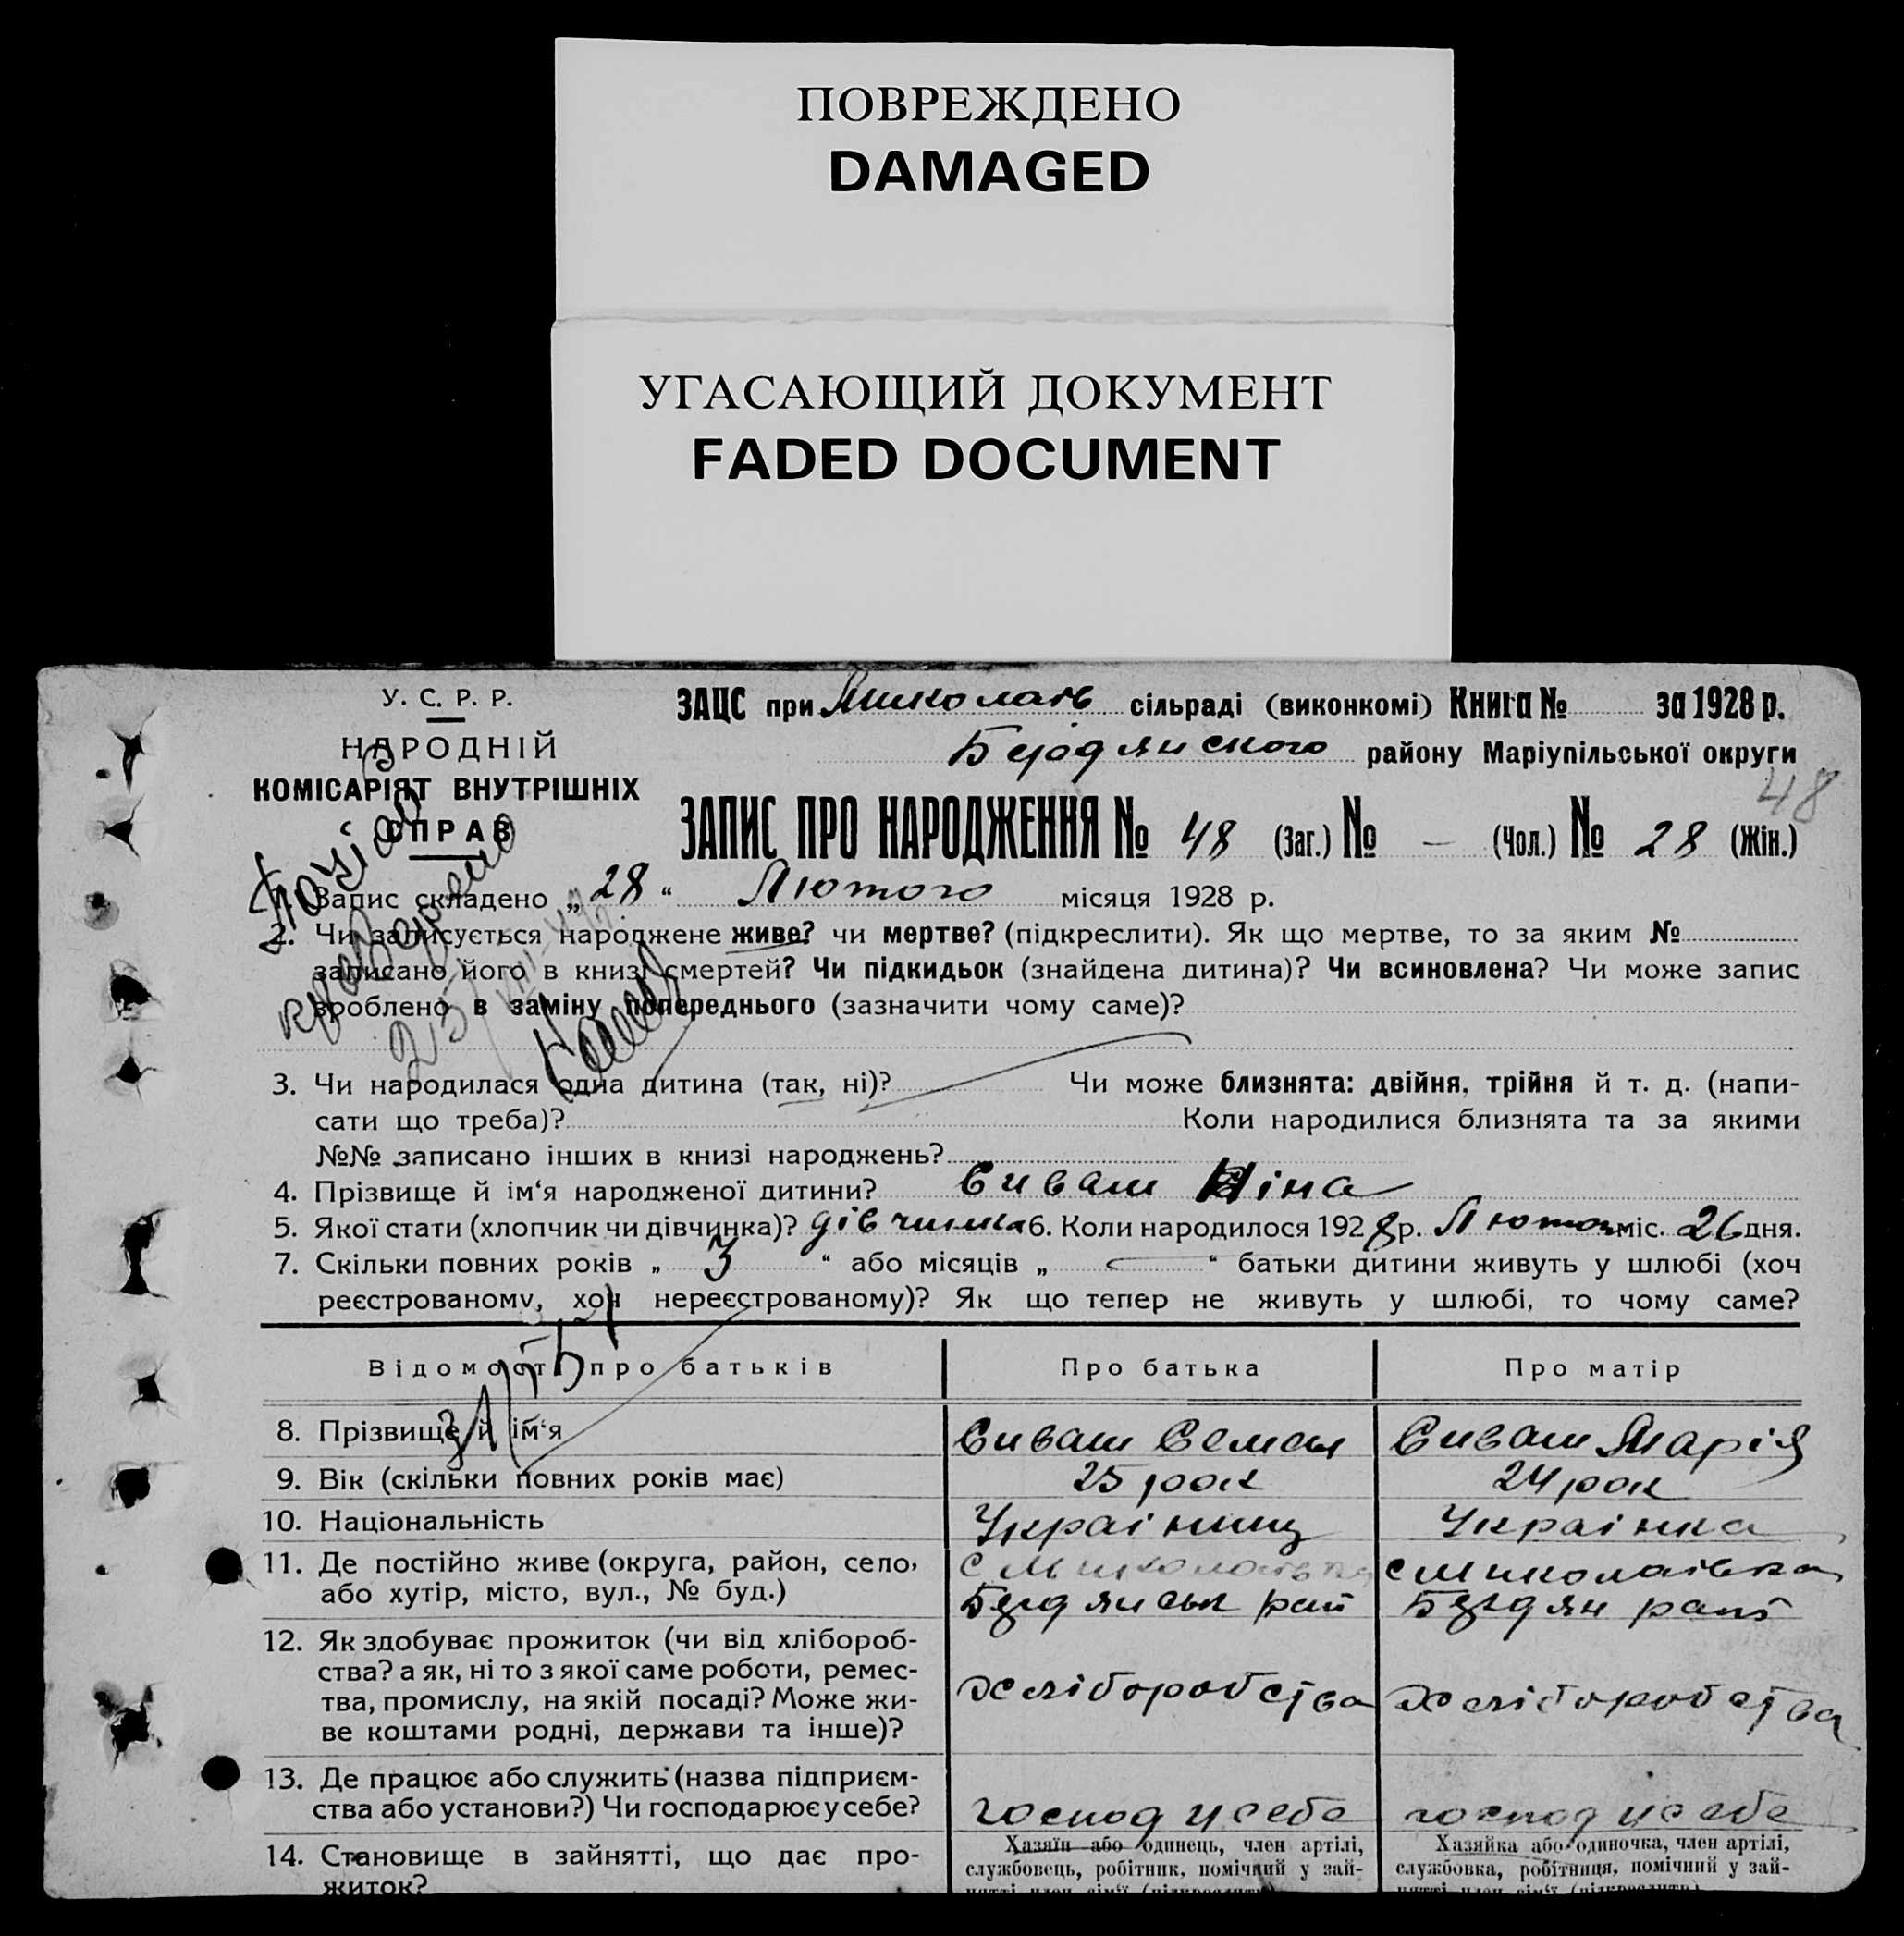 ПОВРЕЖДЕНО
DAMAGED
УГАСАЮЩИЙ ДОКУМЕНТ
FADED DOCUMENT
У. С. Р. Р.
НАРОДНІЙ
КОМІСАРІЯТ ВНУТРІШНІХ
СПРАВ
ЗАЦС при Миколаів сільраді (виконкомі) Книга № за 1928 р.
Бердянского району Маріупільської округи
48
ЗАПИС ПРО НАРОДЖЕННЯ № 48 (Заг.) № — (Чол.) № 28 (Жін.)
1. Запис складено „28“ Лютого місяця 1928 р.
2. Чи записується народжене живе? чи мертве? (підкреслити). Як що мертве, то за яким №
записано його в книзі смертей? Чи підкидьок (знайдена дитина)? Чи всиновлена? Чи може запис
зроблено в заміну попереднього (зазначити чому саме)?
3. Чи народилася одна дитина (так, ні)? Чи може близнята: двійня, трійня й т. д. (напи-
сати що треба)? Коли народилися близнята та за якими
№№ записано інших в книзі народжень?
4. Прізвище й ім‘я народженої дитини? Сиваш Ніна
5. Якої стати (хлопчик чи дівчинка)? дівчинка 6. Коли народилося 1928 р. Лютого міс. 26 дня.
7. Скільки повних років „ 3 “ або місяців „ — “ батьки дитини живуть у шлюбі (хоч
реєстрованому, хоч нереєстрованому)? Як що тепер не живуть у шлюбі, то чому саме?
Відомості про батьків Про батька Про матір
8. Прізвище й ім‘я Сиваш Семен Сиваш Марія
9. Вік (скільки повних років має) 25 рок 24 рок
10. Національність Українец Українка
11. Де постійно живе (округа, район, село, с Миколаівка с Миколаівка
або хутір, місто, вул., № буд.) Бердянськ рай Бердян рай
12. Як здобуває прожиток (чи від хлібороб-
ства? а як, ні то з якої саме роботи, ремес-
тва, промислу, на якій посаді? Може жи- хліборобства хліборобства
ве коштами родні, держави та інше)?
13. Де працює або служить (назва підприєм-
ства або установи?) Чи господарює у себе? господ у себе господ у себе
14. Становище в зайнятті, що дає про- Хазяїн або одинець, член артілі, Хазяйка або одиночка, член артілі,
житок? службовець, робітник, помічний у зай- службовка, робітниця, помічний у зай-
нятті член сім‘ї (підкреслити) нятті член сім‘ї (підкреслити)